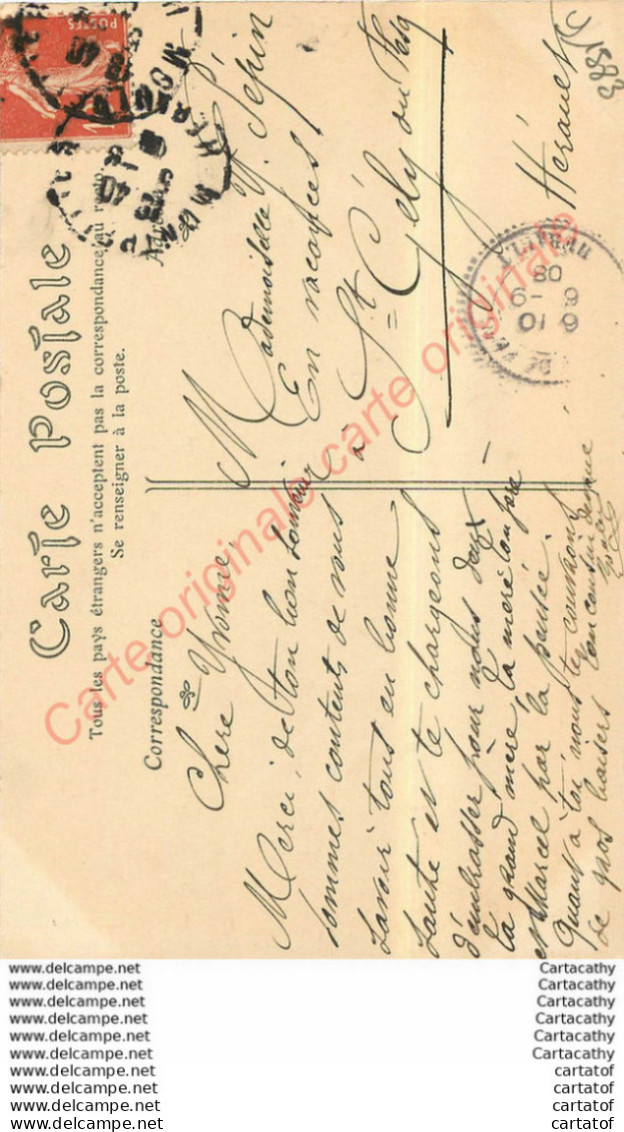 Carte Postale
Tous les pays étrangers n'acceptent pas la correspondance au recto.
Se renseigner à la poste.
Correspondance
Chère Yvonne,
Merci, de ton bon souvenir
sommes contents de vous
savoir tous en bonne
santé et te chargeons
d'embrasser pour nous deux
la grand mère, la mère ton père
et Marcel par la pensée.
Quant à toi nous te couvrons
de gros baisers
Mademoiselle Y. Sépin
En vacances
à St Gély du Fesq
Hérault
3881
POSTES
MONTPELLIER
HERAULT
Carte originale carte originale
www.delcampe.net
www.delcampe.net
www.delcampe.net
www.delcampe.net
www.delcampe.net
www.delcampe.net
www.delcampe.net
www.delcampe.net
www.delcampe.net
www.delcampe.net
Cartacathy
Cartacathy
Cartacathy
Cartacathy
Cartacathy
Cartacathy
cartatof
cartatof
cartatof
cartatof